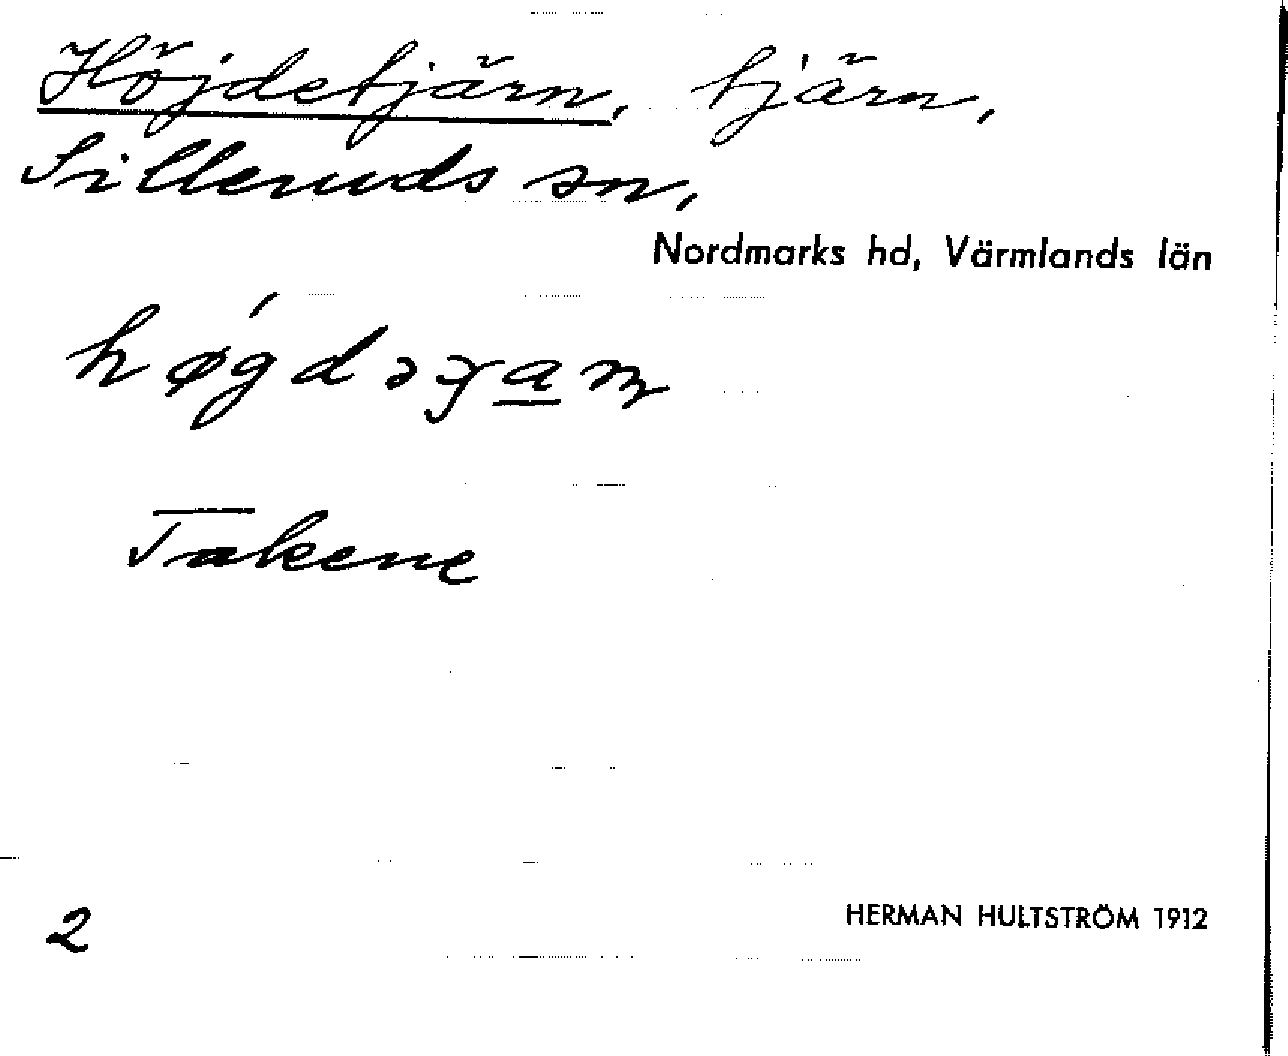 Höjdetjärn, tjärn,
Silleruds sn,
Nordmarks hd, Värmlands län
Takene
2
HERMAN HULTSTRÖM 1912